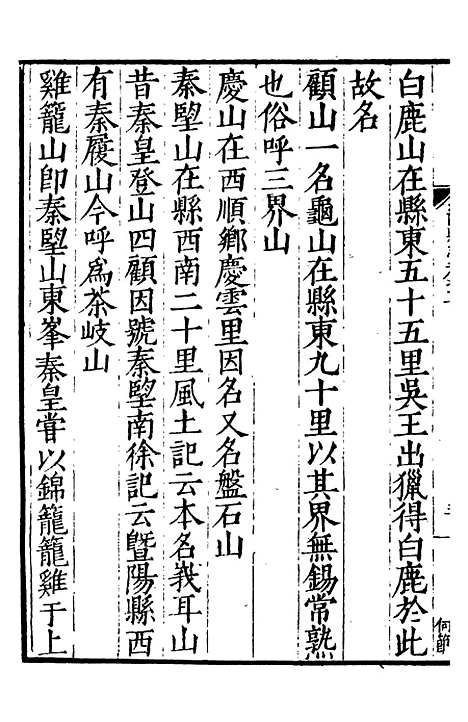 白鹿山在縣東五十五里吳王出獵得白鹿於此
故名
顧山一名龜山在縣東九十里以其界無錫常熟
也俗呼三界山
慶山在西順鄉慶雲里因名又名盤石山
秦朢山在縣西南二十里風土記云本名峩耳山
昔秦皇登山四顧因號秦朢南徐記云曁陽縣西
有秦履山今呼爲茶岐山
雞籠山卽秦朢山東峯秦皇嘗以錦籠籠雞于上